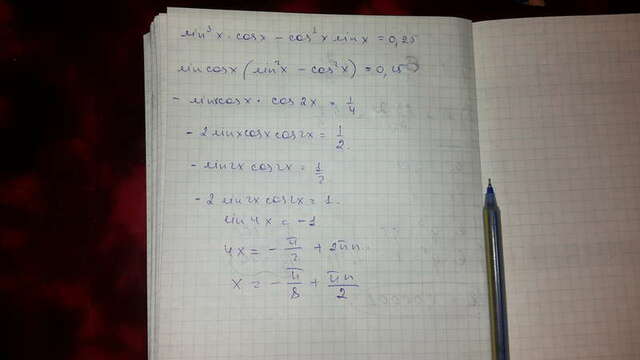 sin³x·cosx − cos³x sinx = 0,25
sinxcosx (sin²x − cos²x) = 0,25
− sinxcosx · cos2x = 1/4
− 2sinxcosxcos2x = 1/2.
− sin2xcos2x = 1/2
− 2sin2xcos2x = 1.
sin4x = −1
4x = − π/2 + 2πn
x = − π/8 + πn/2